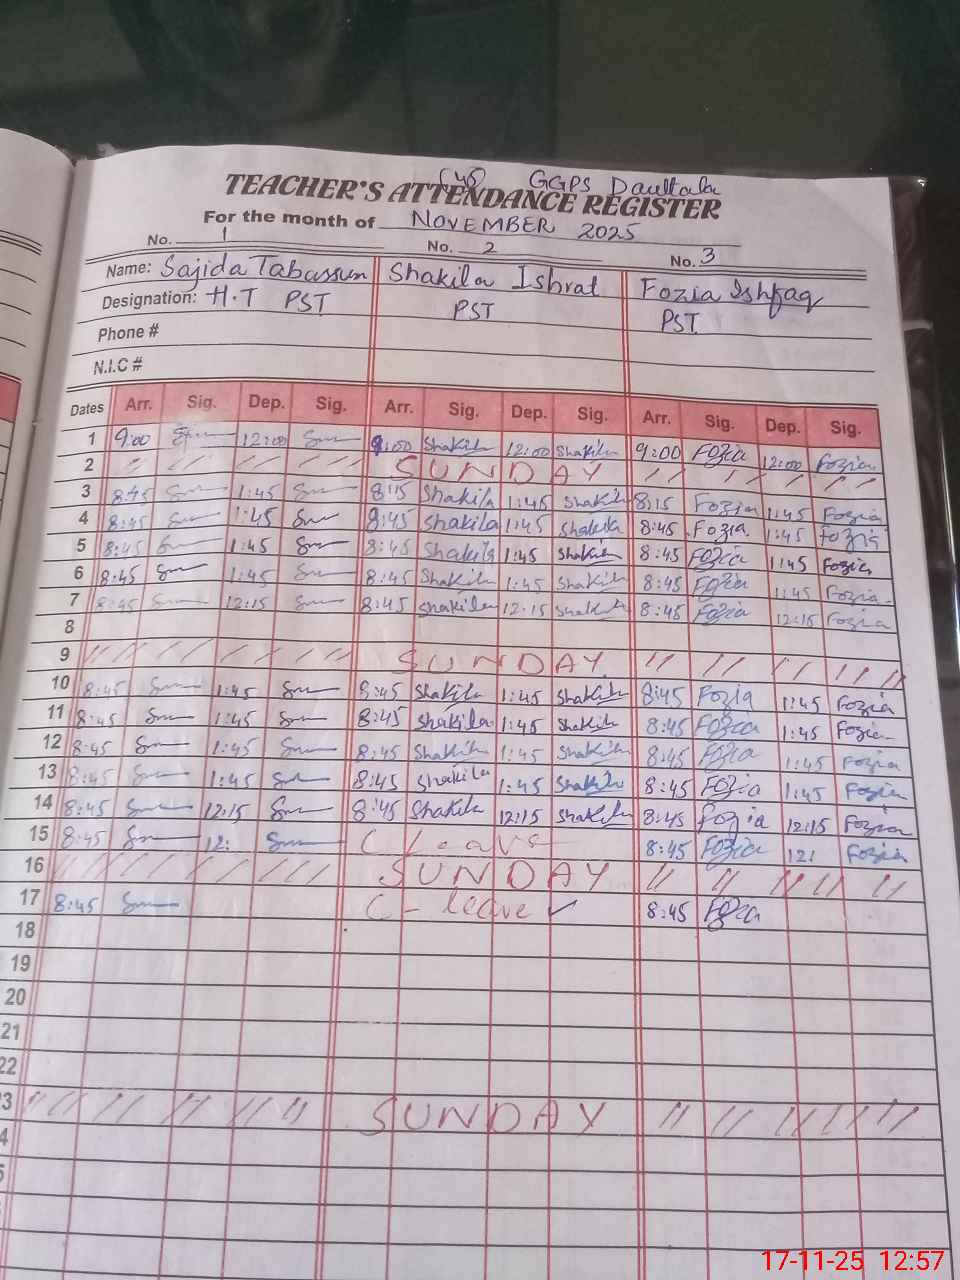 (45) GGPS Daultala
TEACHER'S ATTENDANCE REGISTER
For the month of NOVEMBER 2025
No. 1 No. 2 No. 3
Name: Sajida Tabassum Shakila Ishrat Fozia Ishfaq
Designation: H.T PST PST PST
Phone #
N.I.C #
Dates Arr. Sig. Dep. Sig. Arr. Sig. Dep. Sig. Arr. Sig. Dep. Sig.
1 9:00 12:00 9:00 Shakila 12:00 Shakila 9:00 Fozia 12:00 Fozia
2 SUNDAY
3 8:45 1:45 Shakila 1:45 Shakila Fozia 1:45 Fozia
4 8:45 1:45 8:45 Shakila 1:45 Shakila 8:45 Fozia 1:45 Fozia
5 8:45 1:45 8:45 Shakila 1:45 Shakila 8:45 Fozia 1:45 Fozia
6 8:45 1:45 8:45 Shakila 1:45 Shakila 8:45 Fozia 1:45 Fozia
7 8:45 12:15 8:45 Shakila 12:15 Shakila 8:45 Fozia 12:15 Fozia
8
9 SUNDAY
10 8:45 1:45 8:45 Shakila 1:45 Shakila 8:45 Fozia 1:45 Fozia
11 8:45 1:45 8:45 Shakila 1:45 Shakila 8:45 Fozia 1:45 Fozia
12 8:45 1:45 8:45 Shakila 1:45 Shakila 8:45 Fozia 1:45 Fozia
13 8:45 1:45 8:45 Shakila 1:45 Shakila 8:45 Fozia 1:45 Fozia
14 8:45 12:15 8:45 Shakila 12:15 Shakila 8:45 Fozia 12:15 Fozia
15 8:45 12: C Leave 8:45 Fozia 12: Fozia
16 SUNDAY
17 8:45 C - leave ✓ 8:45 Fozia
18
19
20
21
22
3 SUNDAY
4
17-11-25 12:57